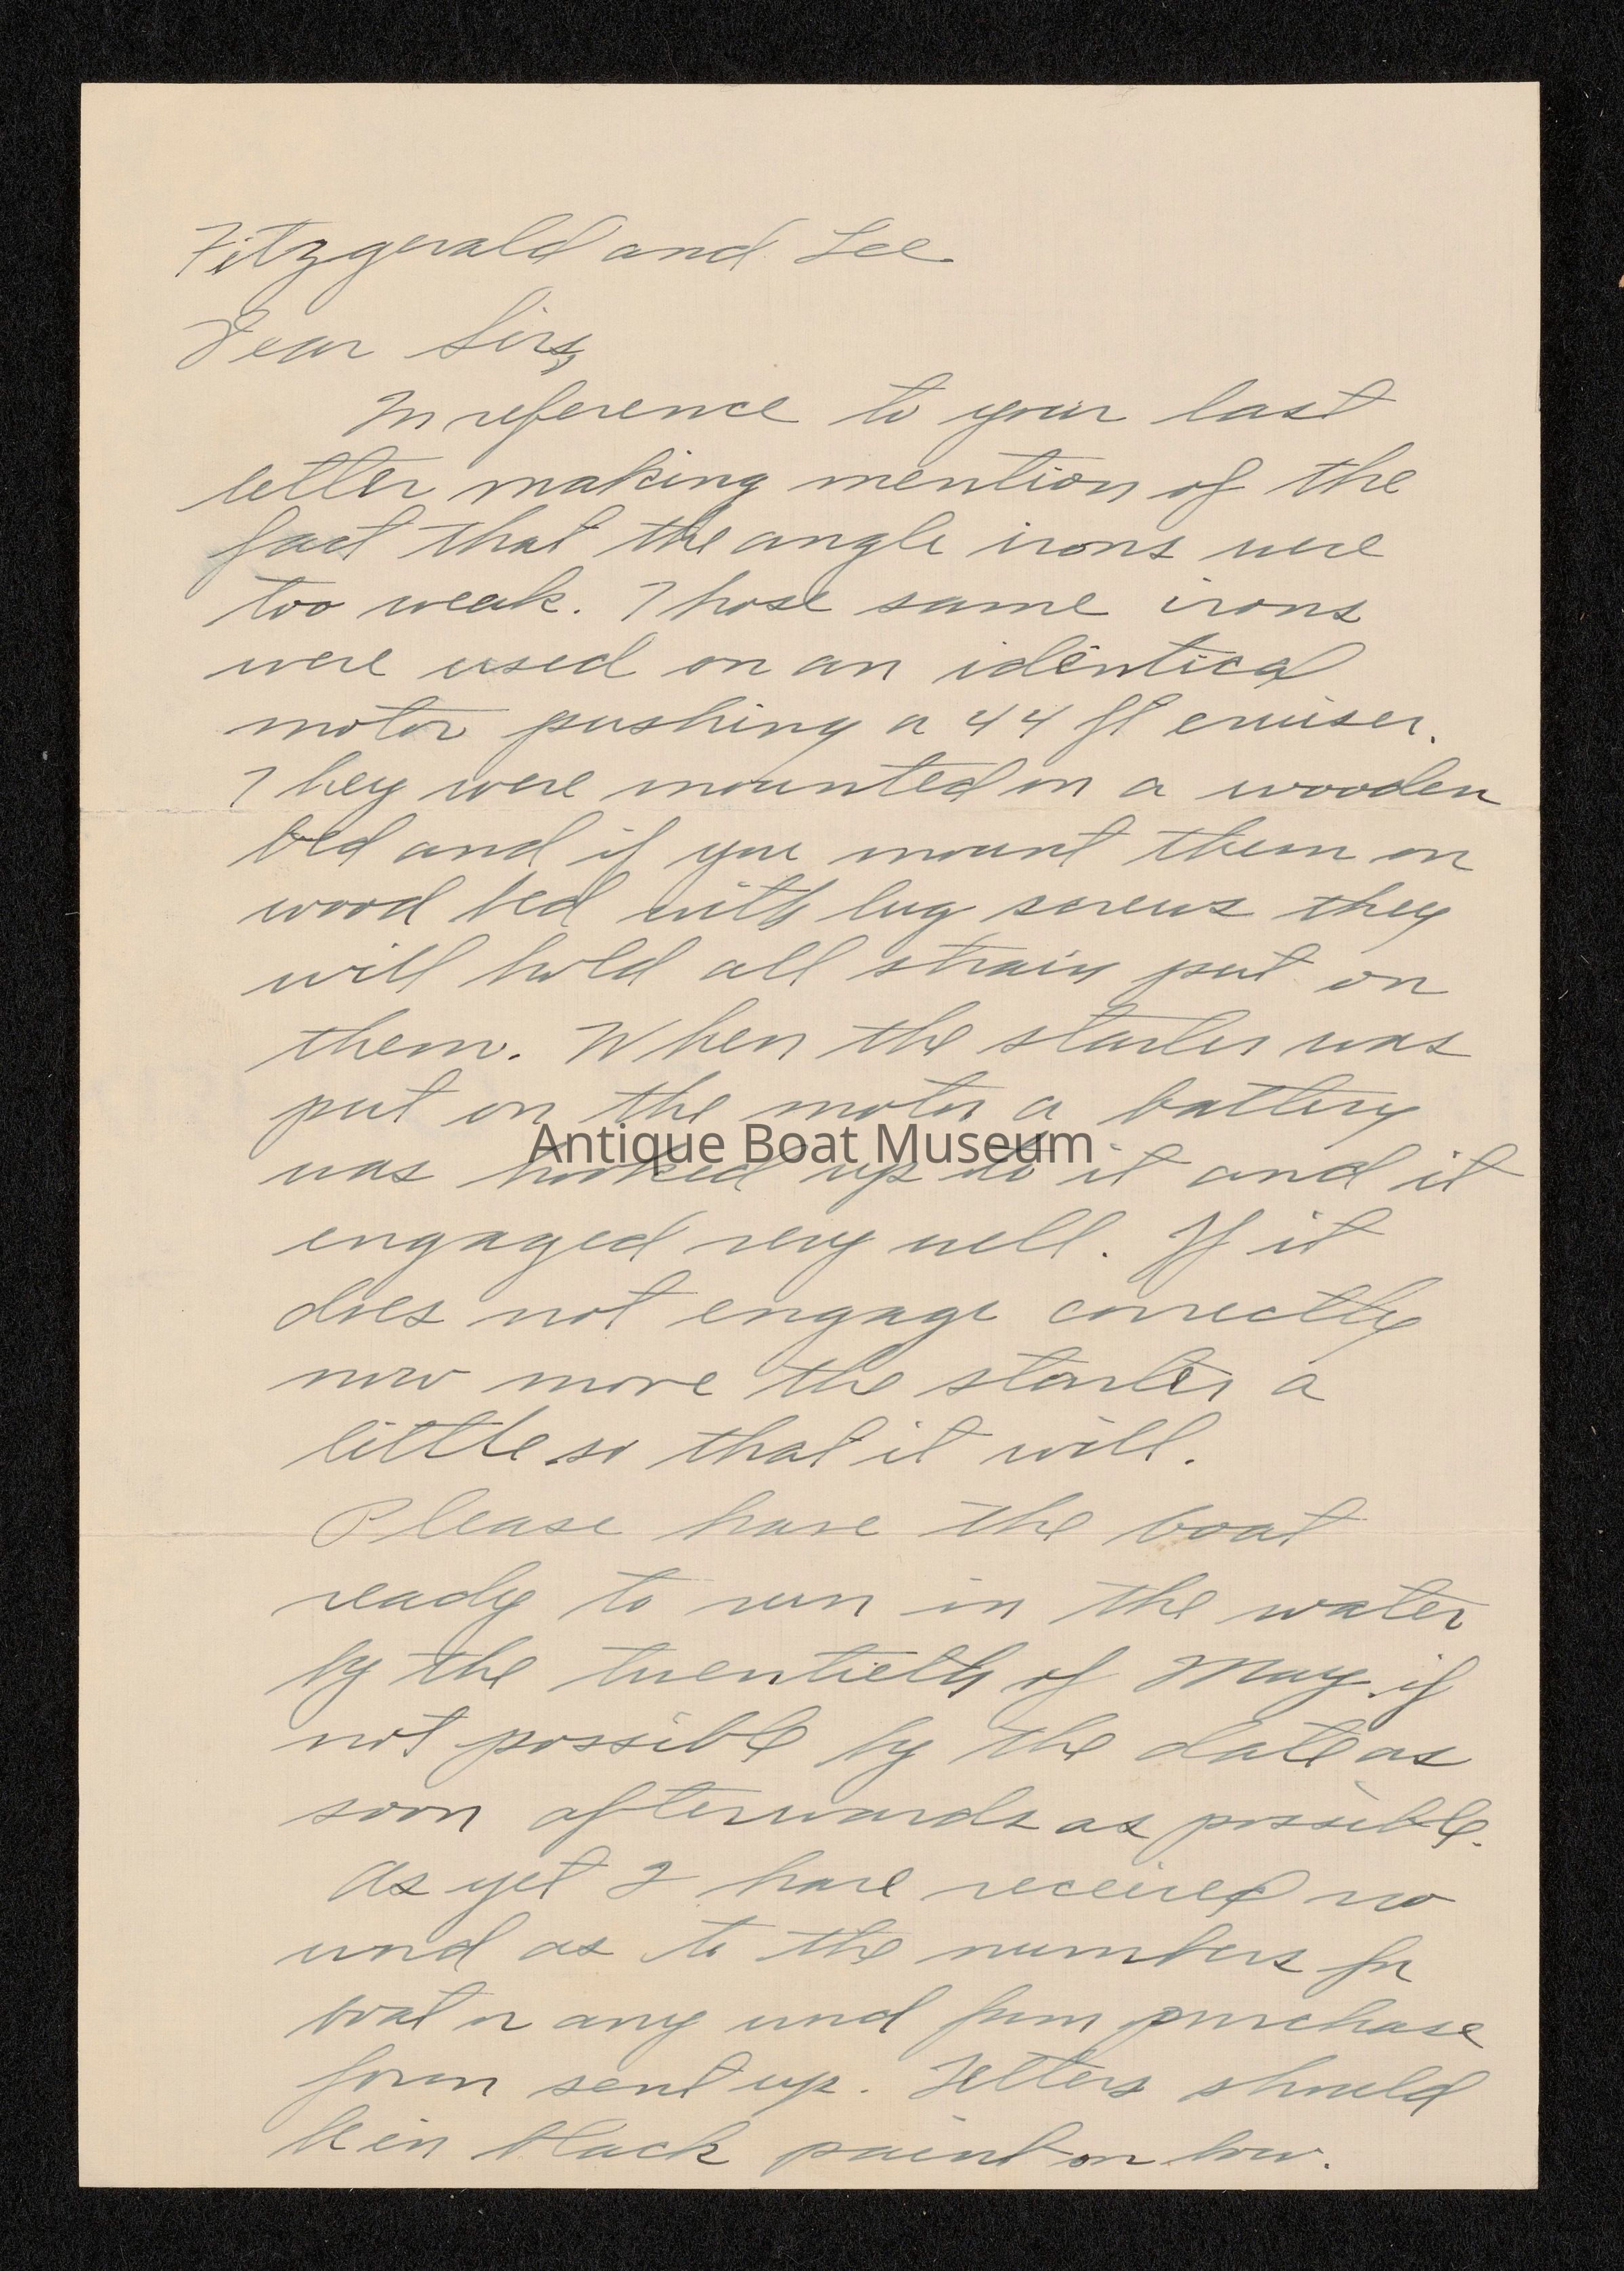 Fitzgerald and Lee
Dear Sirs,
In reference to your last
letter making mention of the
fact that the angle irons were
too weak. Those same irons
were used on an identical
motor pushing a 44 ft cruiser.
They were mounted on a wooden
bed and if you mount them on
wood bed with lug screws they
will hold all strain put on
them. When the starter was
put on the motor a battery
Antique Boat Museum
was hooked up to it and it
engaged very well. If it
does not engage correctly
now move the starter a
little so that it will.
Please have the boat
ready to run in the water
by the twentieth of May if
not possible by the date as
soon afterwards as possible.
As yet I have received no
word as to the numbers for
boat or any word from purchase
form sent up. Letters should
be in black paint on bow.